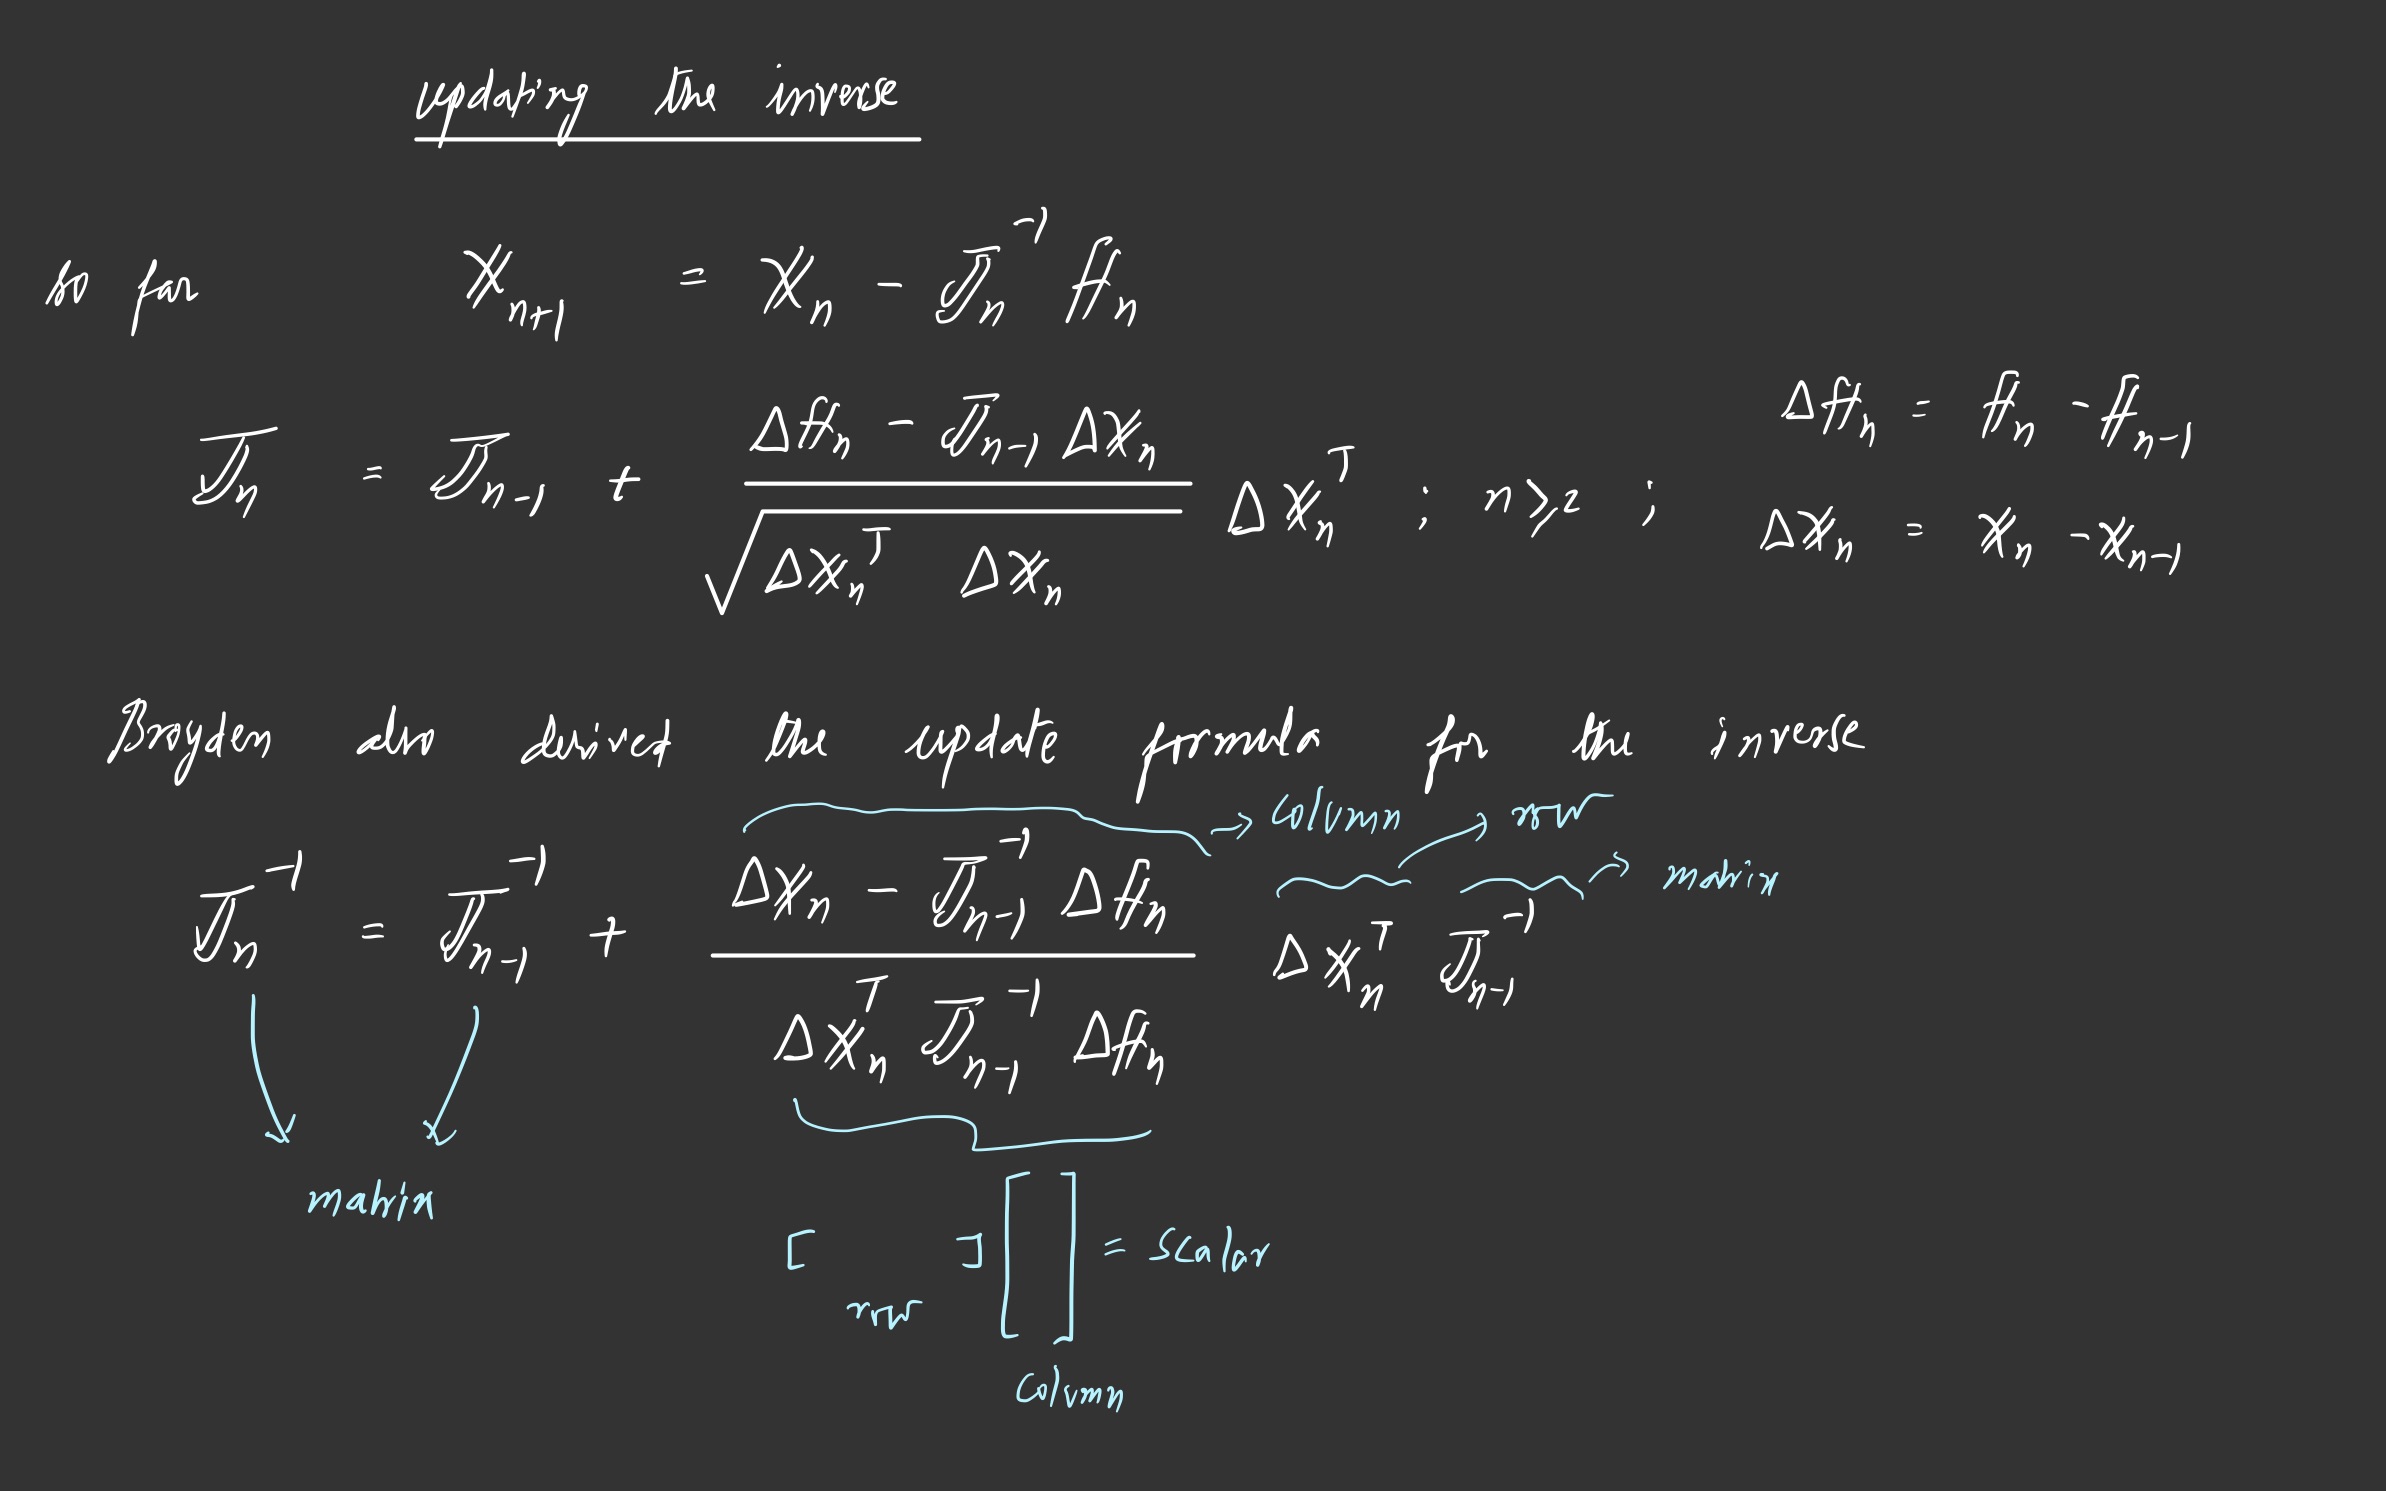 updating the inverse
so far x_{n+1} = x_n - J̄_n^{-1} f_n
J̄_n = J̄_{n-1} + (Δf_n - J̄_{n-1} Δx_n) / √(Δx_n^T Δx_n) Δx_n^T ; n ≥ 2 ;
Δf_n = f_n - f_{n-1}
Δx_n = x_n - x_{n-1}
Broyden derived the update formula for the inverse
J̄_n^{-1} = J̄_{n-1}^{-1} + (Δx_n - J̄_{n-1}^{-1} Δf_n) / (Δx_n^T J̄_{n-1}^{-1} Δf_n) Δx_n^T J̄_{n-1}^{-1}
→ column
row
→ matrix
matrix
[ ] [ ] = scalar
row
column